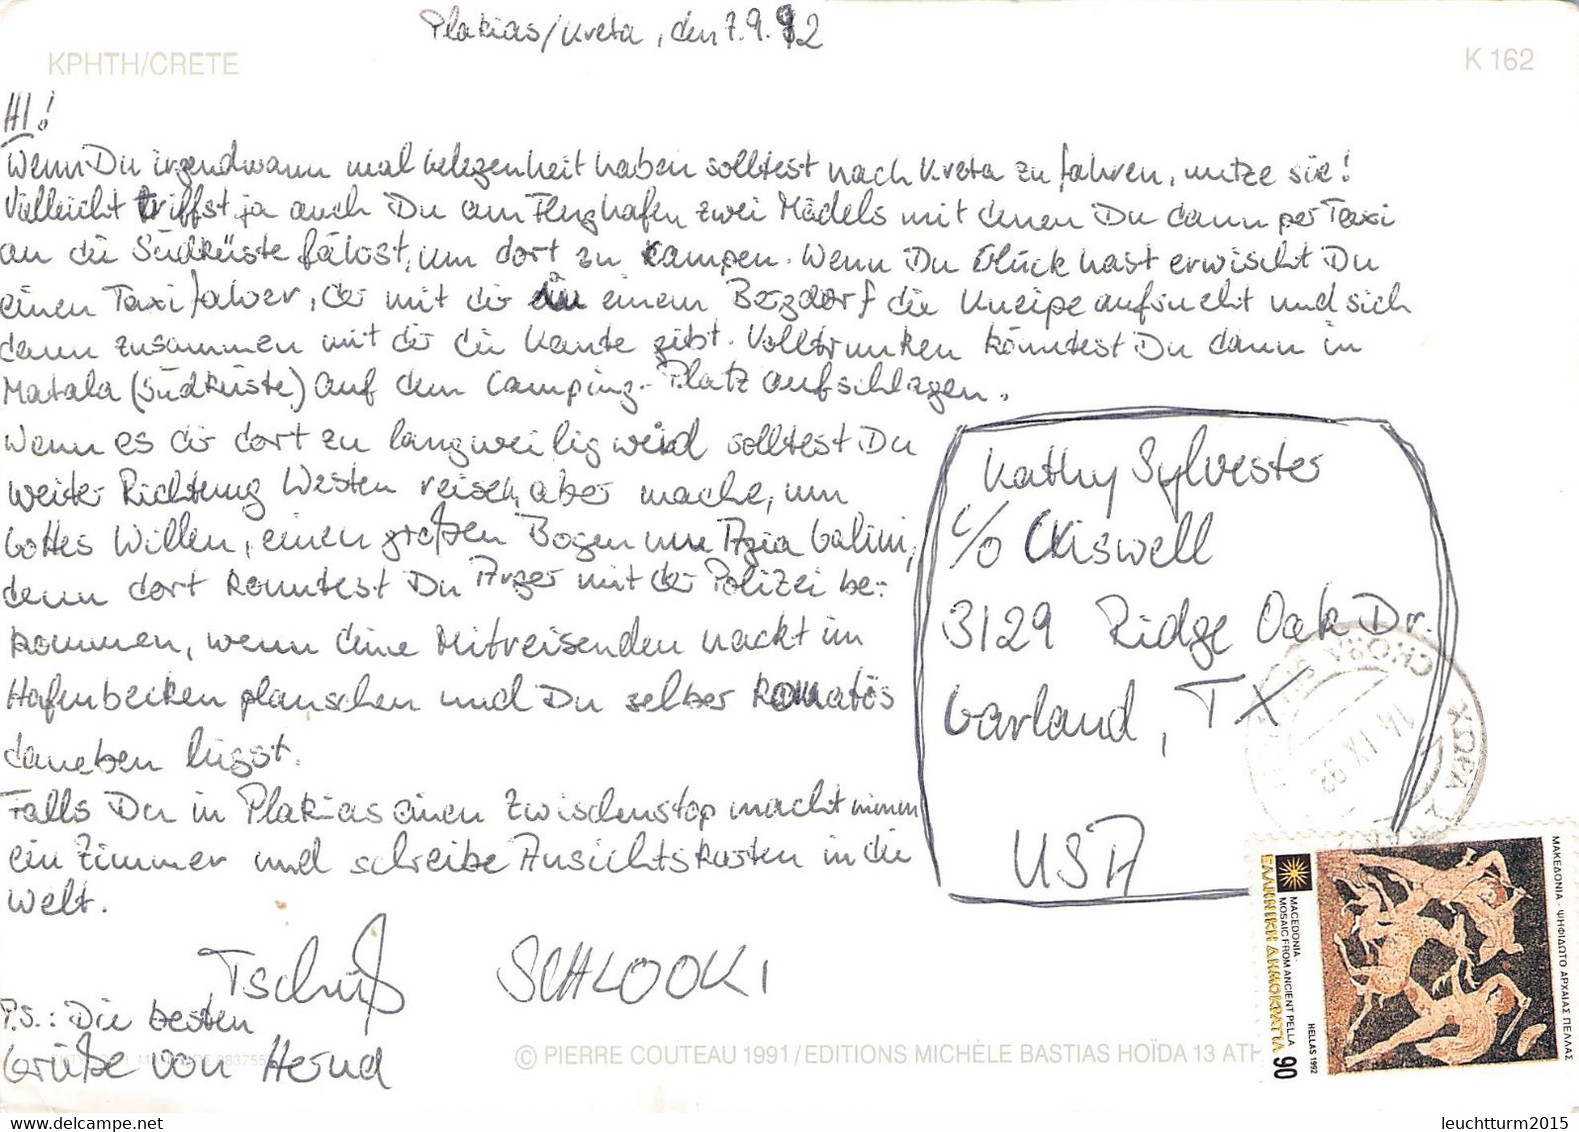 Plakias/Kreta, den 7.9.92
ΚΡΗΤΗ/CRETE
K 162
HI!
Wenn Du irgendwann mal Gelegenheit haben solltest nach Kreta zu fahren, nutze sie!
Vielleicht triffst ja auch Du am Flughafen zwei Mädels mit denen Du dann per Taxi
an die Südküste fährst, um dort zu campen. Wenn Du Glück hast erwischt Du
einen Taxifahrer, der mit dir in einem Bergdorf die Kneipe aufsucht und sich
dann zusammen mit dir die Kante gibt. Volltrunken könntest Du dann in
Matala (Südküste) auf dem Camping-Platz aufschlagen.
Wenn es dir dort zu langweilig wird solltest Du
weiter Richtung Westen reisen, aber mache, um
Gottes Willen, einen großen Bogen um Agia Galini,
denn dort könntest Du Ärger mit der Polizei be-
kommen, wenn deine Mitreisenden nackt im
Hafenbecken planschen und Du selber komatös
daneben liegst.
Falls Du in Plakias einen Zwischenstop machst nimm
ein Zimmer und schreibe Ansichtskarten in die
Welt.
Tschüß SCHLOOKI
P.S.: Die besten
Grüße von Hernd
Kathy Sylvester
c/o Criswell
3129 Ridge Oak Dr.
Garland, TX
USA
14 IX 92
ΧΩΡΑ
© PIERRE COUTEAU 1991/EDITIONS MICHÈLE BASTIAS HOÏDA 13 ATH
ΜΑΚΕΔΟΝΙΑ - ΨΗΦΙΔΩΤΟ ΑΡΧΑΙΑΣ ΠΕΛΛΑΣ
HELLAS 1992
MACEDONIA
MOSAIC FROM ANCIENT PELLA
ΕΛΛΗΝΙΚΗ ΔΗΜΟΚΡΑΤΙΑ 90
leuchtturm2015